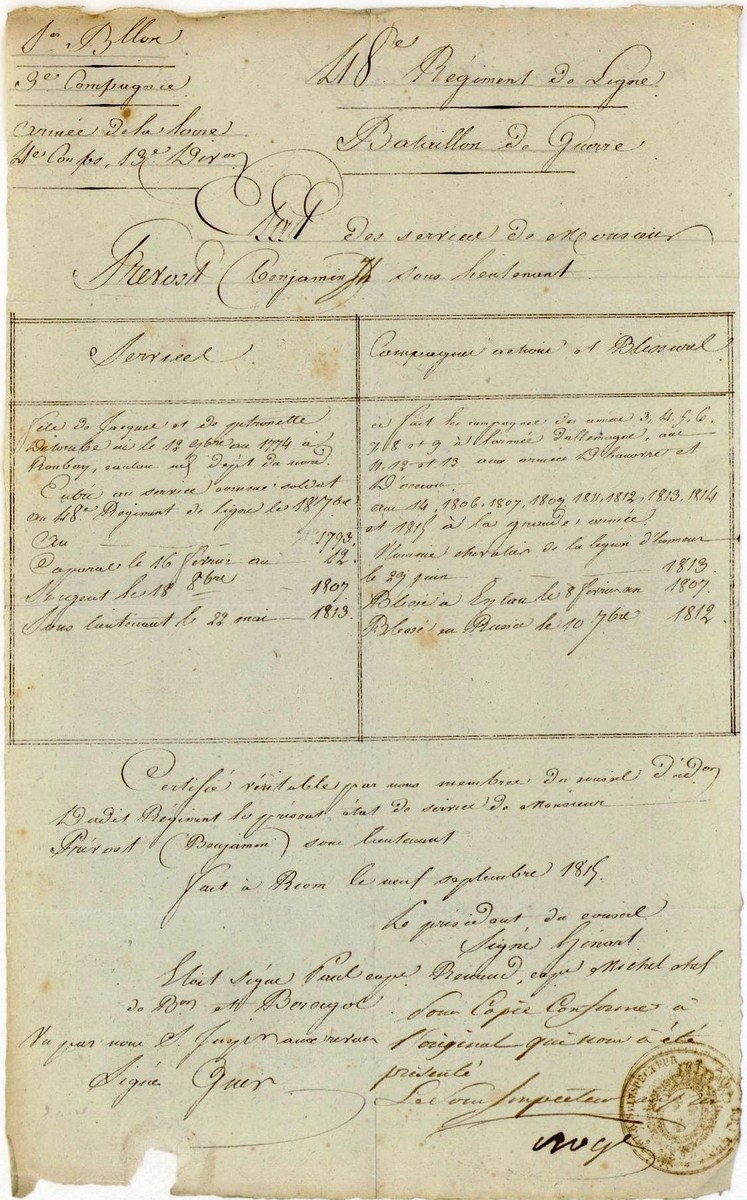 1er Bllon
3e Compagnie
armée de la loire
4e Corps, 13e Divon
48e Régiment de Ligne
Bataillon de Guerre
Etat des service de Monsieur
Prevost (Benjamin) sous lieutenant
Services
Campagnes actions et Blessures
fils de Jacques et de petronelle
né le 12 au 1774 à
Roubay, canton dept du nord.
Entré au service comme soldat
au 48e Régiment de ligne le 18 7bre
an 1793.
Caporal le 16 février an 12.
Sergent le 18 8bre 1807
Sous lieutenant le 22 mai 1813.
a fait les campagnes des années 3, 4, 5, 6,
7, 8 et 9 à l'armée d'allemagne, an
11, 12 et 13 aux armées D'hanovre et
D'
an 14, 1806, 1807, 1809, 1811, 1812, 1813, 1814
et 1815 à la grande armée.
Nommé chevalier de la legion d'honneur
le 29 juin 1813.
Blessé à Eylau le 8 fevrier an 1807.
Blessé en Russie le 10 7bre 1812
Certifié véritable par nous membres du conseil d'adon
Dudit Régiment le présent état de service de Monsieur
Prévost (Benjamin) sous lieutenant
fait à Riom le neuf septembre 1815.
Le président du conseil
Signé
Etoit signé Paul cape Renaud, cape Michel chef
de Bon et
Vu par nous S. Inspr aux revues
Signé
Pour Copie Conforme à
l'original qui nous a été
présenté
Le Sous Inspecteur